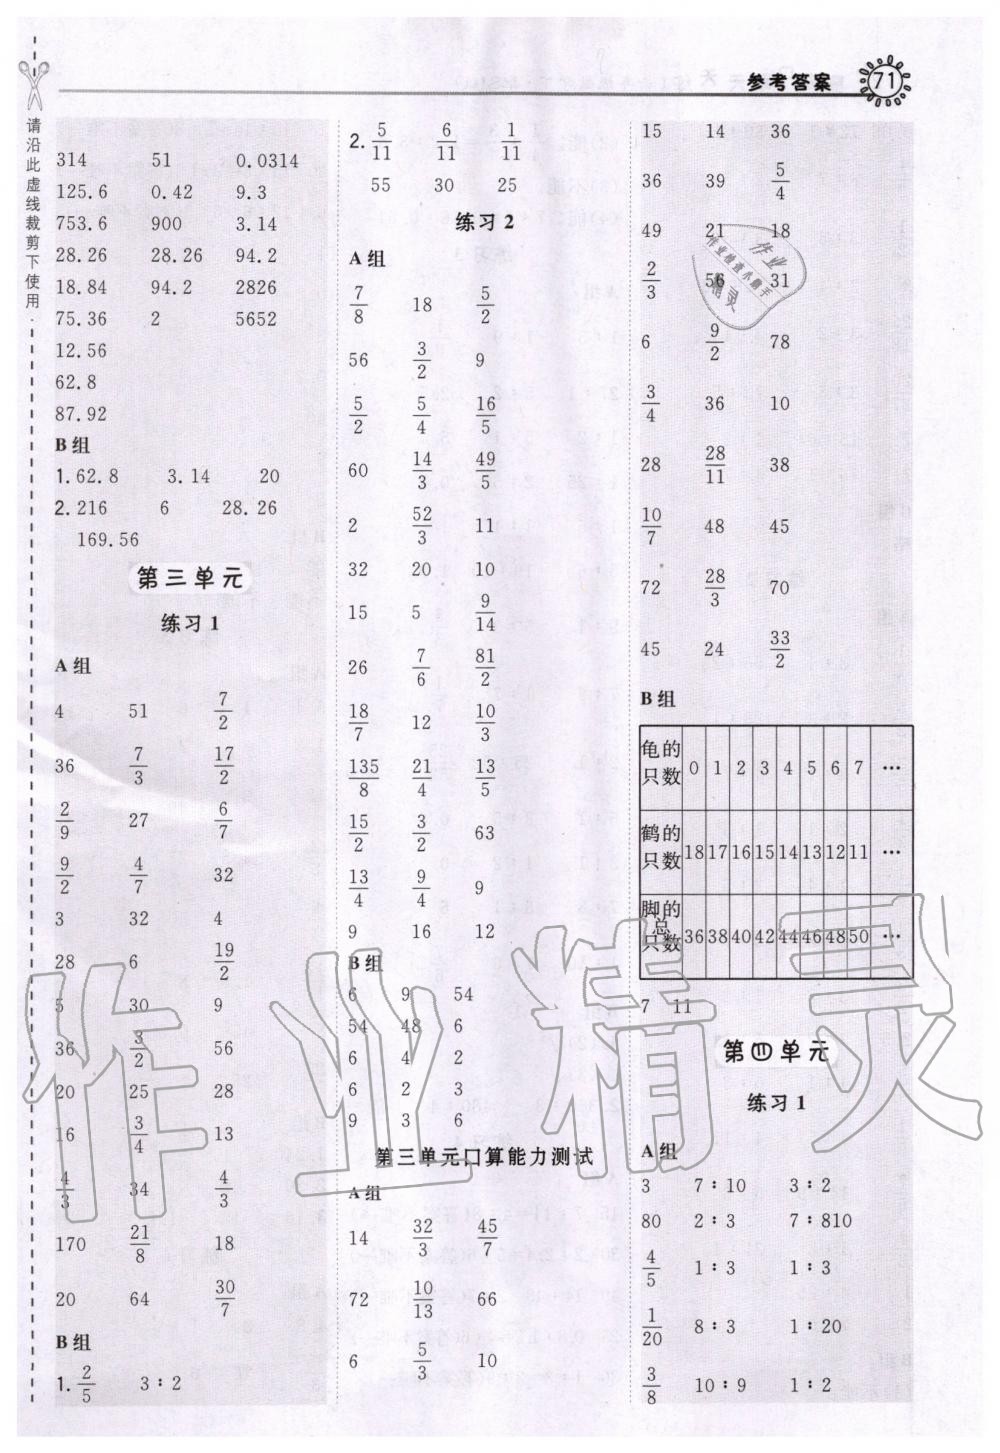 参考答案 71
请沿此虚线裁剪下使用
314 51 0.0314
125.6 0.42 9.3
753.6 900 3.14
28.26 28.26 94.2
18.84 94.2 2826
75.36 2 5652
12.56
62.8
87.92
B组
1.62.8 3.14 20
2.216 6 28.26
169.56
第三单元
练习1
A组
4 51 7/2
36 7/3 17/2
2/9 27 6/7
9/2 4/7 32
3 32 4
28 6 19/2
5 30 9
36 3/2 56
20 25 28
16 3/4 13
4/3 34 4/3
170 21/8 18
20 64 30/7
B组
1. 2/5 3∶2
2. 5/11 6/11 1/11
55 30 25
练习2
A组
7/8 18 5/2
56 3/2 9
5/2 5/4 16/5
60 14/3 49/5
2 52/3 11
32 20 10
15 5 9/14
26 7/6 81/2
18/7 12 10/3
135/8 21/4 13/5
15/2 3/2 63
13/4 9/4 9
9 16 12
B组
6 9 54
54 48 6
6 4 2
6 2 3
9 3 6
第三单元口算能力测试
A组
14 32/3 45/7
72 10/13 66
6 5/3 10
15 14 36
36 39 5/4
49 21 18
2/3 56 31
6 9/2 78
3/4 36 10
28 28/11 38
10/7 48 45
72 28/3 70
45 24 33/2
B组
龟的只数 0 1 2 3 4 5 6 7 …
鹤的只数 18 17 16 15 14 13 12 11 …
脚的总只数 36 38 40 42 44 46 48 50 …
7 11
第四单元
练习1
A组
3 7∶10 3∶2
80 2∶3 7∶810
4/5 1∶3 1∶3
1/20 8∶3 1∶20
3/8 10∶9 1∶2
作业精灵
作业
作业检查小助手
精灵